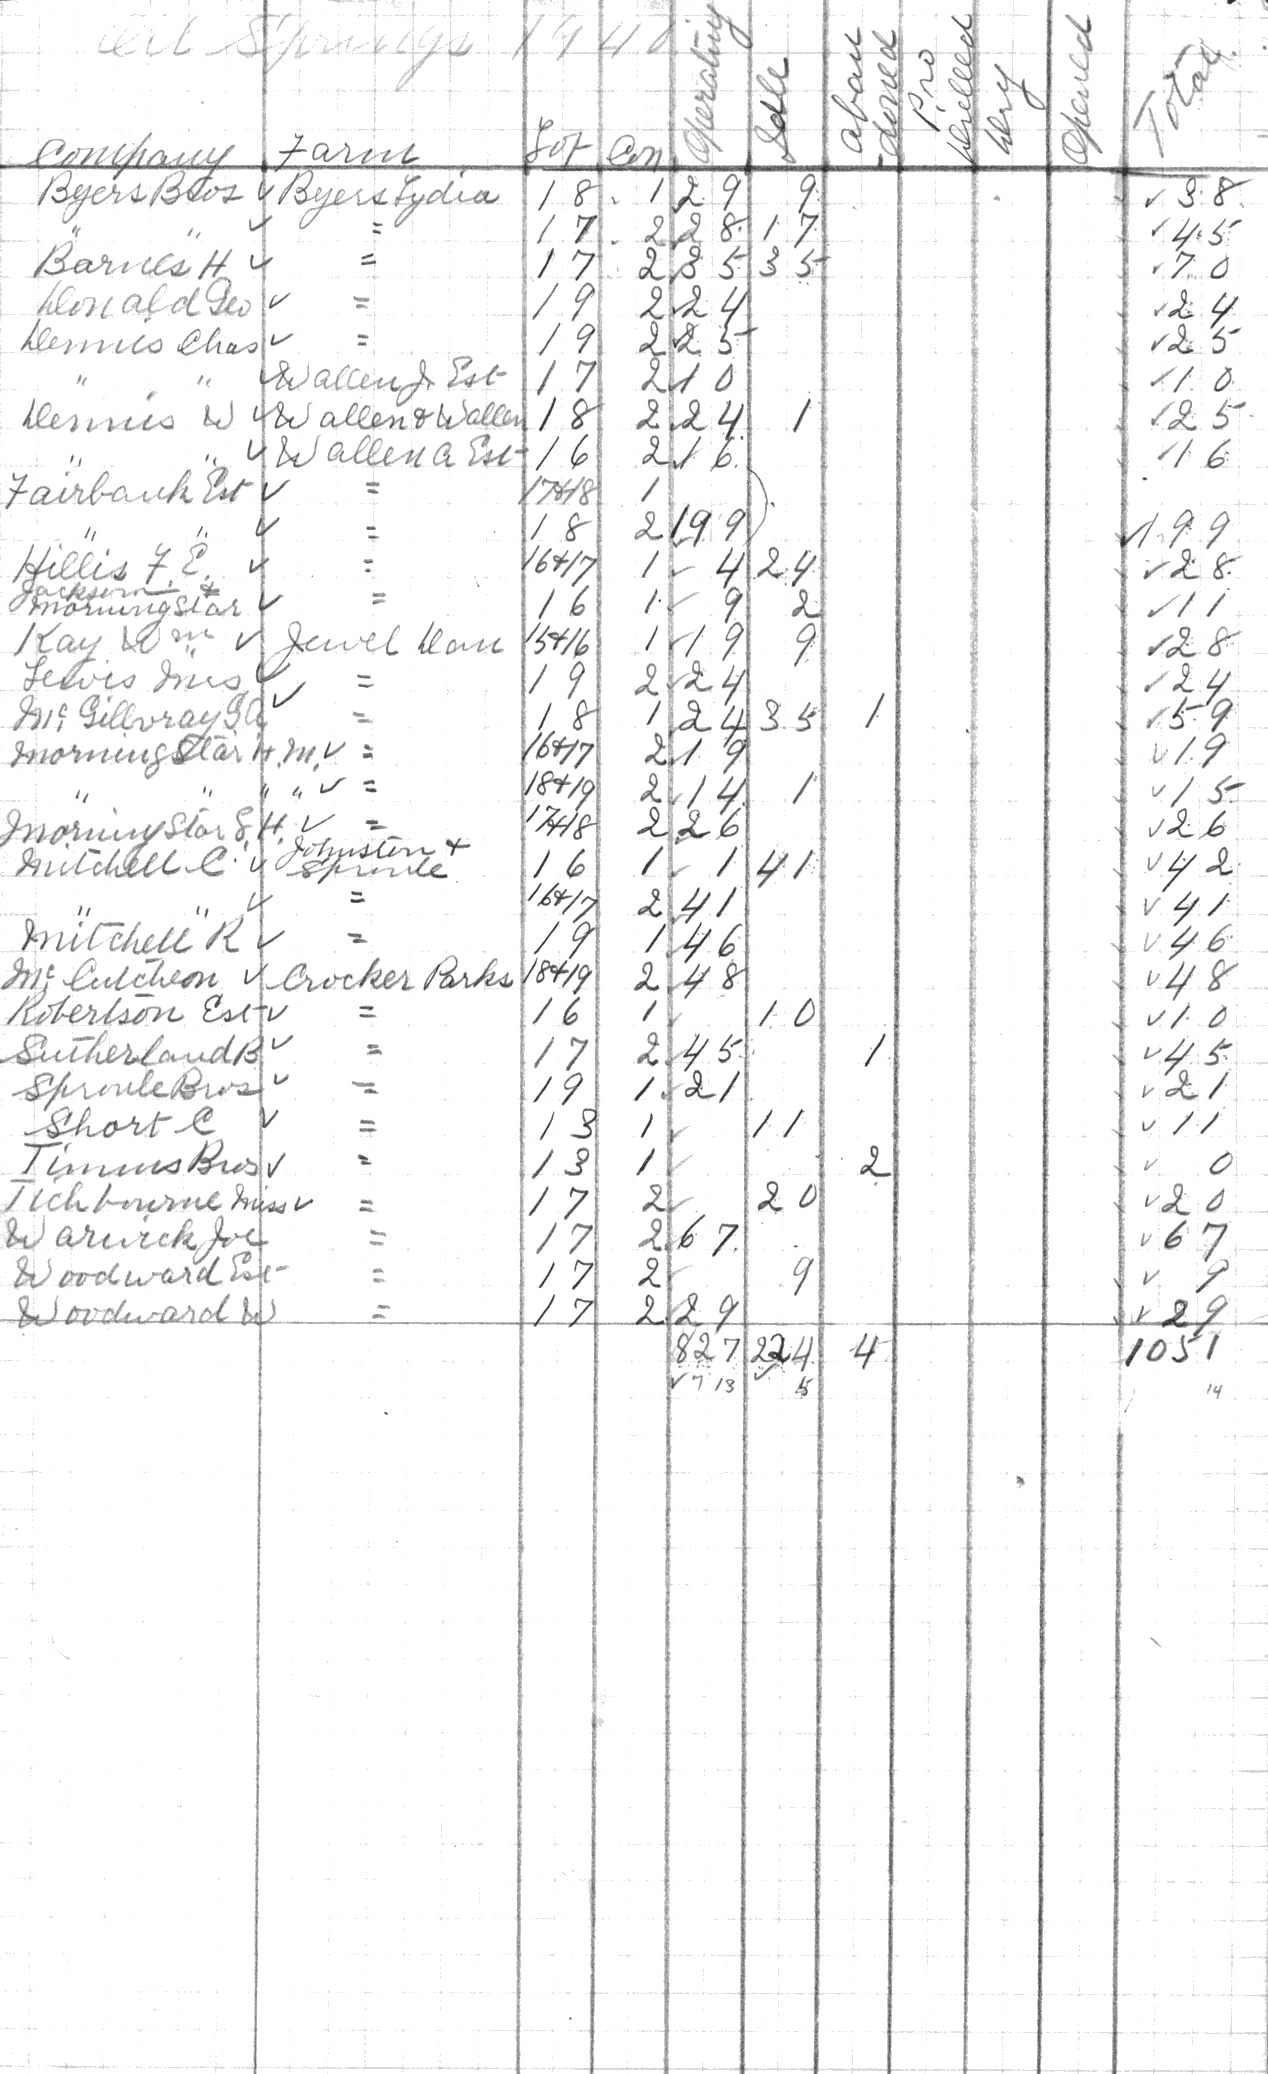 Oil Springs 1940
Company Farm Lot Con Operating Idle aban-doned Pro Drilled Dry Opened Total
Byers Bros ✓ Byers Lydia 18 1 29 9 ✓ 38
" " ✓ = 17 2 28 17 ✓ 45
Barnes H ✓ = 17 2 35 35 ✓ 70
Donald Geo ✓ = 19 2 24 ✓ 24
Dennis Chas ✓ = 19 2 25 ✓ 25
" " ✓ Wallen J. Est 17 2 10 ✓ 10
Dennis W ✓ Wallen & Wallen 18 2 24 1 ✓ 25
" " ✓ Wallen A Est 16 2 16 ✓ 16
Fairbank Est ✓ = 17+18 1
" " ✓ = 18 2 199 ✓ 199
Hillis F. E. ✓ = 16+17 1 ✓ 4 24 ✓ 28
Jackson &
Morningstar ✓ = 16 1 ✓ 9 2 ✓ 11
Kay Wm ✓ Jewel Dan 15+16 1 ✓ 19 9 ✓ 28
Lewis Mrs ✓ = 19 2 ✓ 24 ✓ 24
McGillvray G A ✓ = 18 1 24 35 1 ✓ 59
Morningstar H. M. ✓ = 16+17 2 19 ✓ 19
" " " " ✓ = 18+19 2 ✓ 14 1 ✓ 15
Morningstar S. H. ✓ = 17+18 2 26 ✓ 26
Mitchell C. ✓ Johnston + Sproule 16 1 ✓ 1 41 ✓ 42
" " ✓ = 16+17 2 41 ✓ 41
Mitchell R ✓ = 19 1 46 ✓ 46
McCutcheon ✓ Crocker Parks 18+19 2 48 ✓ 48
Robertson Est ✓ = 16 1 ✓ 10 ✓ 10
Sutherland B ✓ = 17 2 45 1 ✓ 45
Sproule Bros ✓ = 19 1 21 ✓ 21
Short C ✓ = 13 1 ✓ 11 ✓ 11
Timms Bros ✓ = 13 1 ✓ 2 ✓ 0
Tichbourne Miss ✓ = 17 2 ✓ 20 ✓ 20
Warwick Joe = 17 2 67 ✓ 67
Woodward Est = 17 2 ✓ 9 ✓ 9
Woodward W = 17 2 29 ✓ 29
827 224 4 1051
✓ 7 13 ✓ 15 14